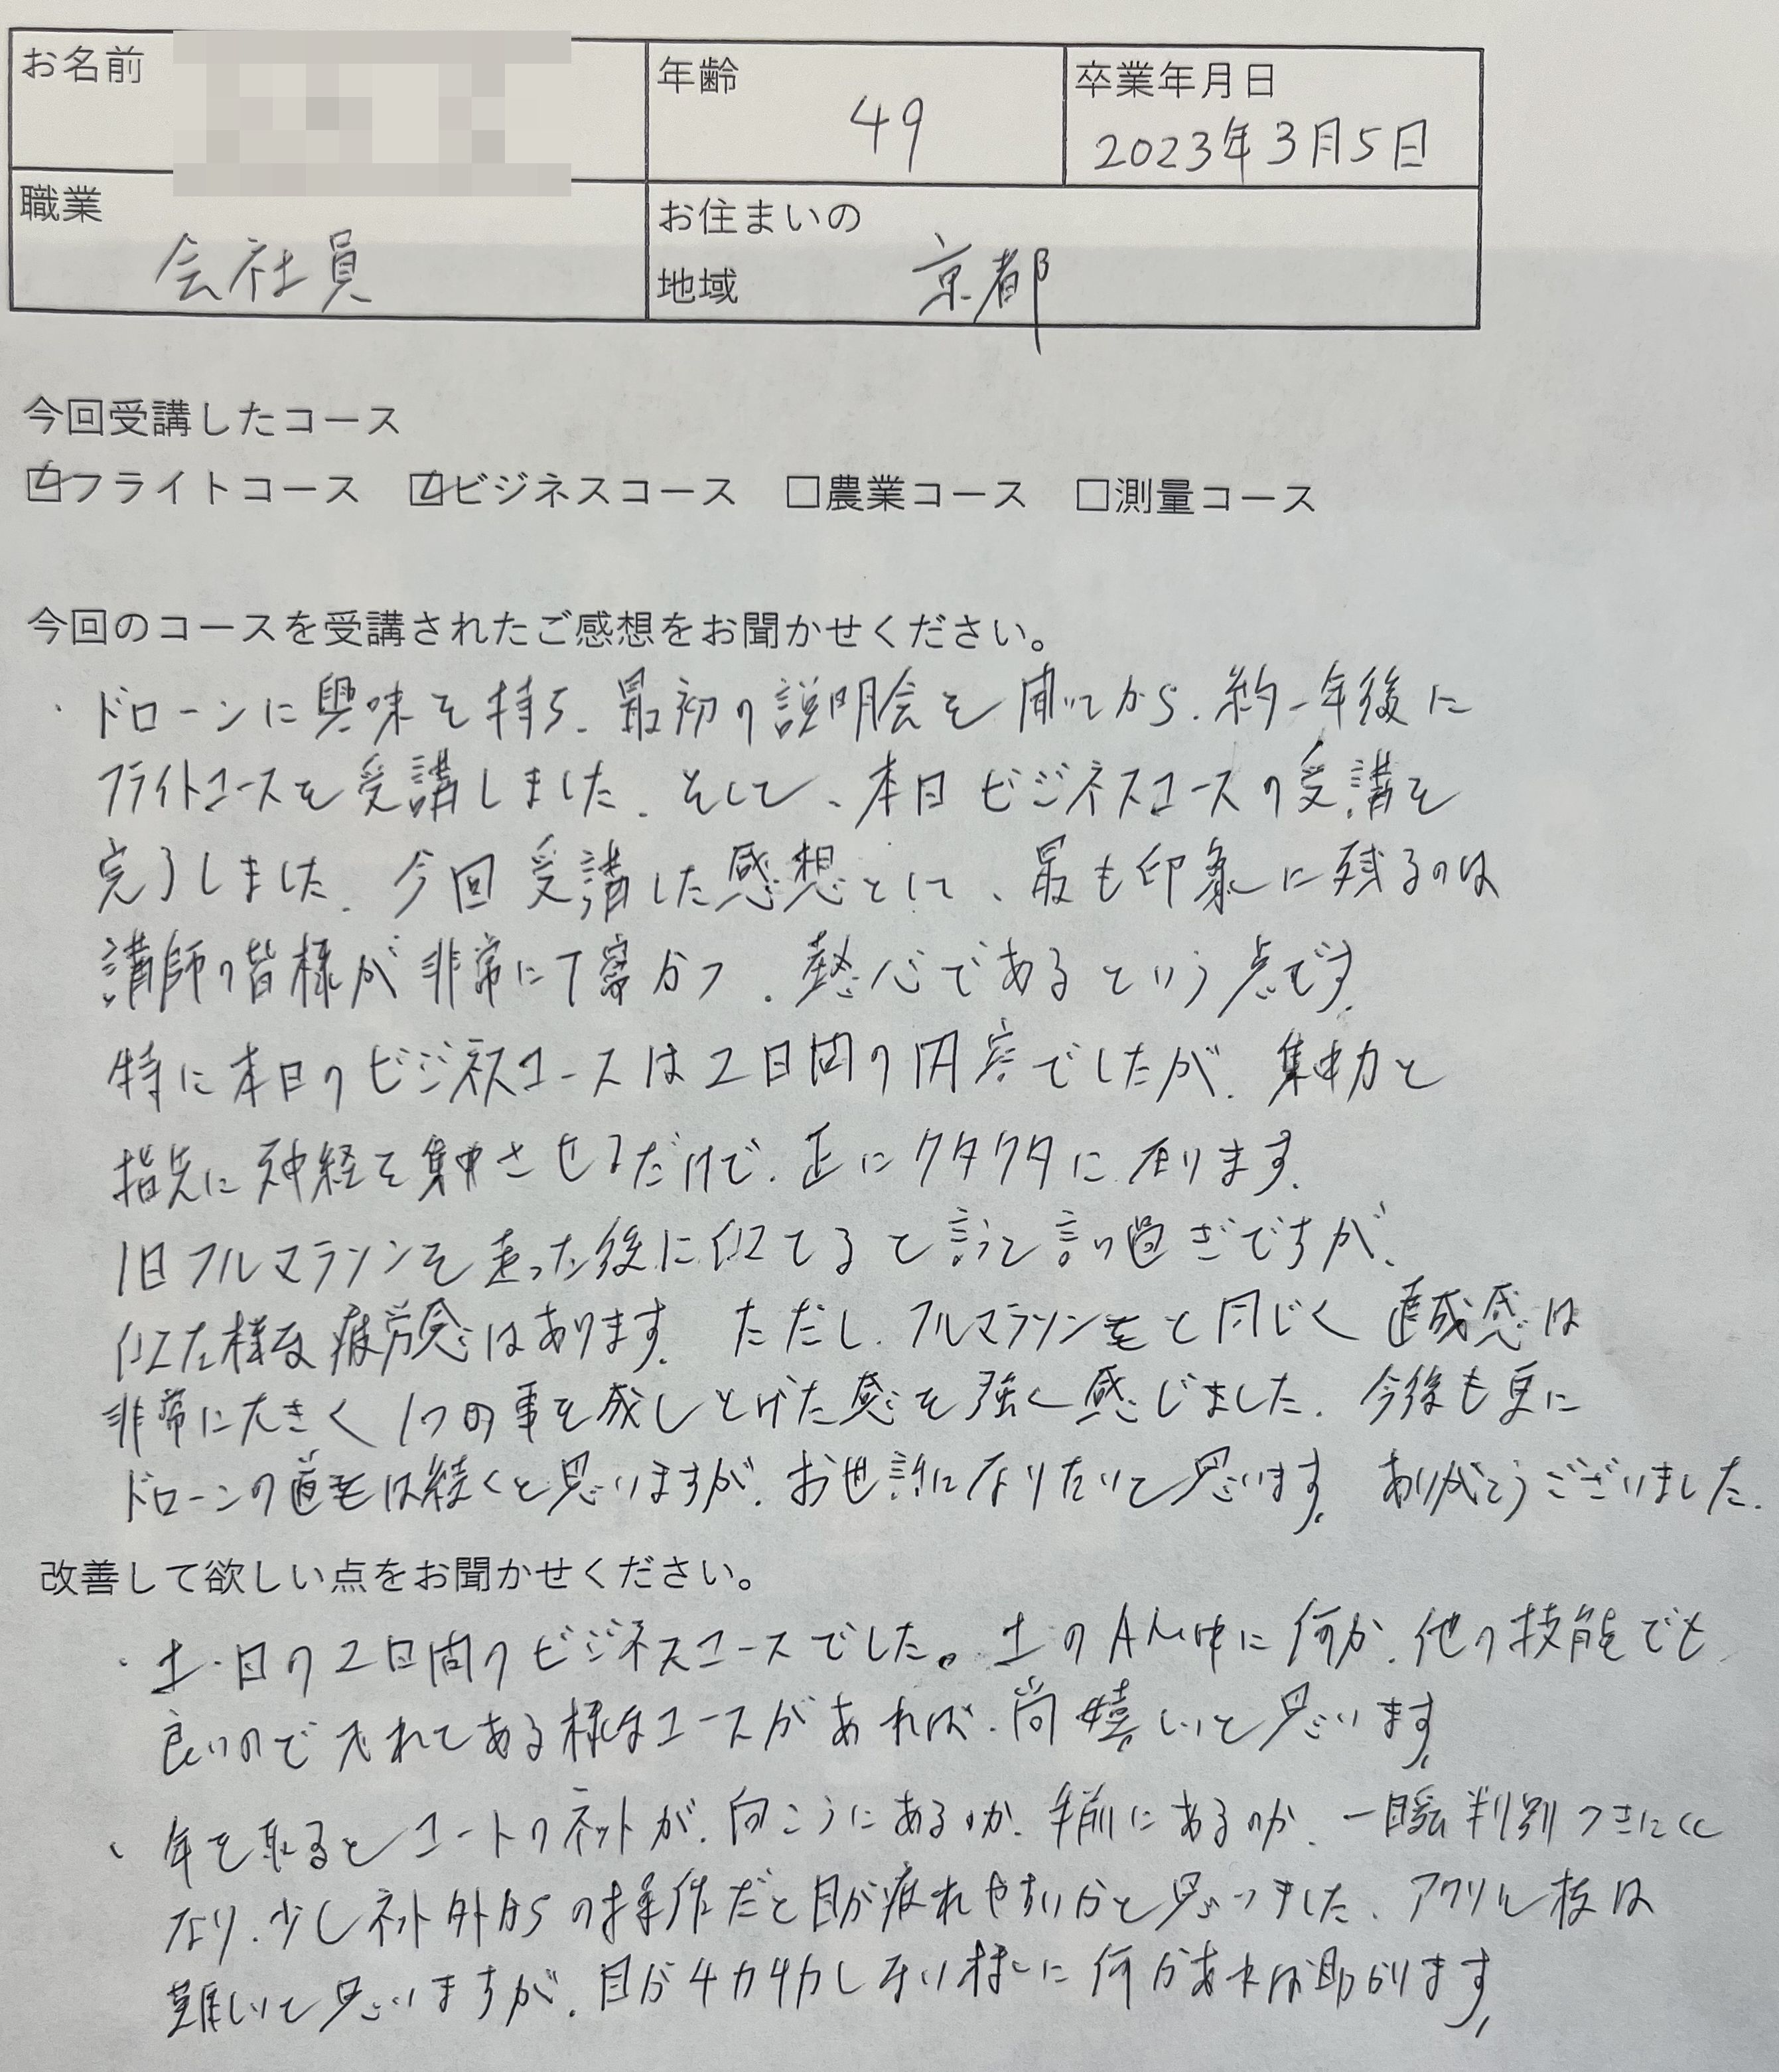 お名前
年齢
49
卒業年月日
2023年3月5日
職業
会社員
お住まいの
地域
京都
今回受講したコース
☑フライトコース ☑ビジネスコース □農業コース □測量コース
今回のコースを受講されたご感想をお聞かせください。
・ドローンに興味を持ち、最初の説明会を聞いてから、約一年後に
フライトコースを受講しました。そして、本日ビジネスコースの受講を
完了しました。今回受講した感想として、最も印象に残るのは
講師の皆様が非常に丁寧かつ、熱心であるという点です。
特に本日のビジネスコースは2日間の内容でしたが、集中力と
指先に神経を集中させるだけで、正にクタクタになります。
1日フルマラソンを走った後に似てると言うと言い過ぎですが、
似た様な疲労感はあります。ただし、フルマラソンと同じく達成感は
非常に大きく1つの事を成しとげた感を強く感じました。今後も更に
ドローンの道は続くと思いますが、お世話になりたいと思います。ありがとうございました。
改善して欲しい点をお聞かせください。
・土・日の2日間のビジネスコースでした。土のAM中に何か、他の技能でも
良いので入れてある様なコースがあれば、尚嬉しいと思います。
・年を取るとコートのネットが、向こうにあるのか、手前にあるのか、一瞬判別つきにくく
なり、少しネット外からの操作だと目が疲れやすいかと思いました、アクリル板は
難しいと思いますが、目がチカチカしない様に何かあれば助かります。